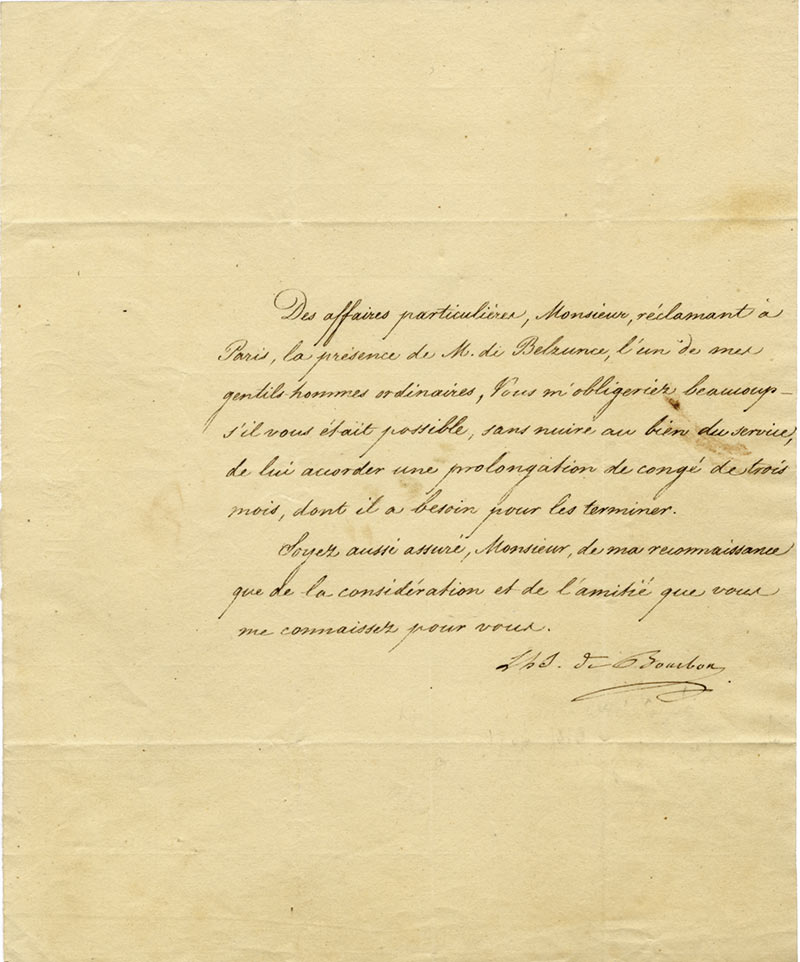 Des affaires particulières, Monsieur, réclamant à
Paris, la présence de M. de Belzunce, l'un de mes
gentils-hommes ordinaires, Vous m'obligeriez beaucoup
s'il vous était possible, sans nuire au bien du service,
de lui accorder une prolongation de congé de trois
mois, dont il a besoin pour les terminer.
Soyez aussi assuré, Monsieur, de ma reconnaissance
que de la considération et de l'amitié que vous
me connaissez pour vous.
de Bourbon